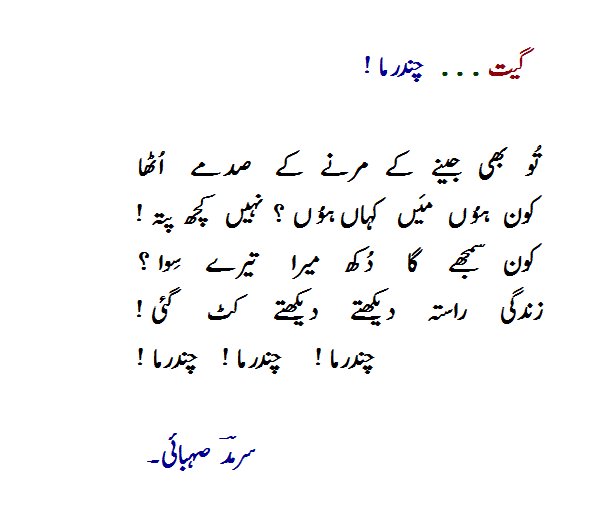 گیت ... چندرما !
تُو بھی جینے کے مرنے کے صدمے اُٹھا
کون ہوُں میَں کہاں ہوُں ؟ نہیں کچھ پتہ !
کون سمجھے گا دُکھ میرا تیرے سِوا ؟
زندگی راستہ دیکھتے دیکھتے کٹ گئی !
چندرما ! چندرما ! چندرما !
سرمدؔ صہبائی۔